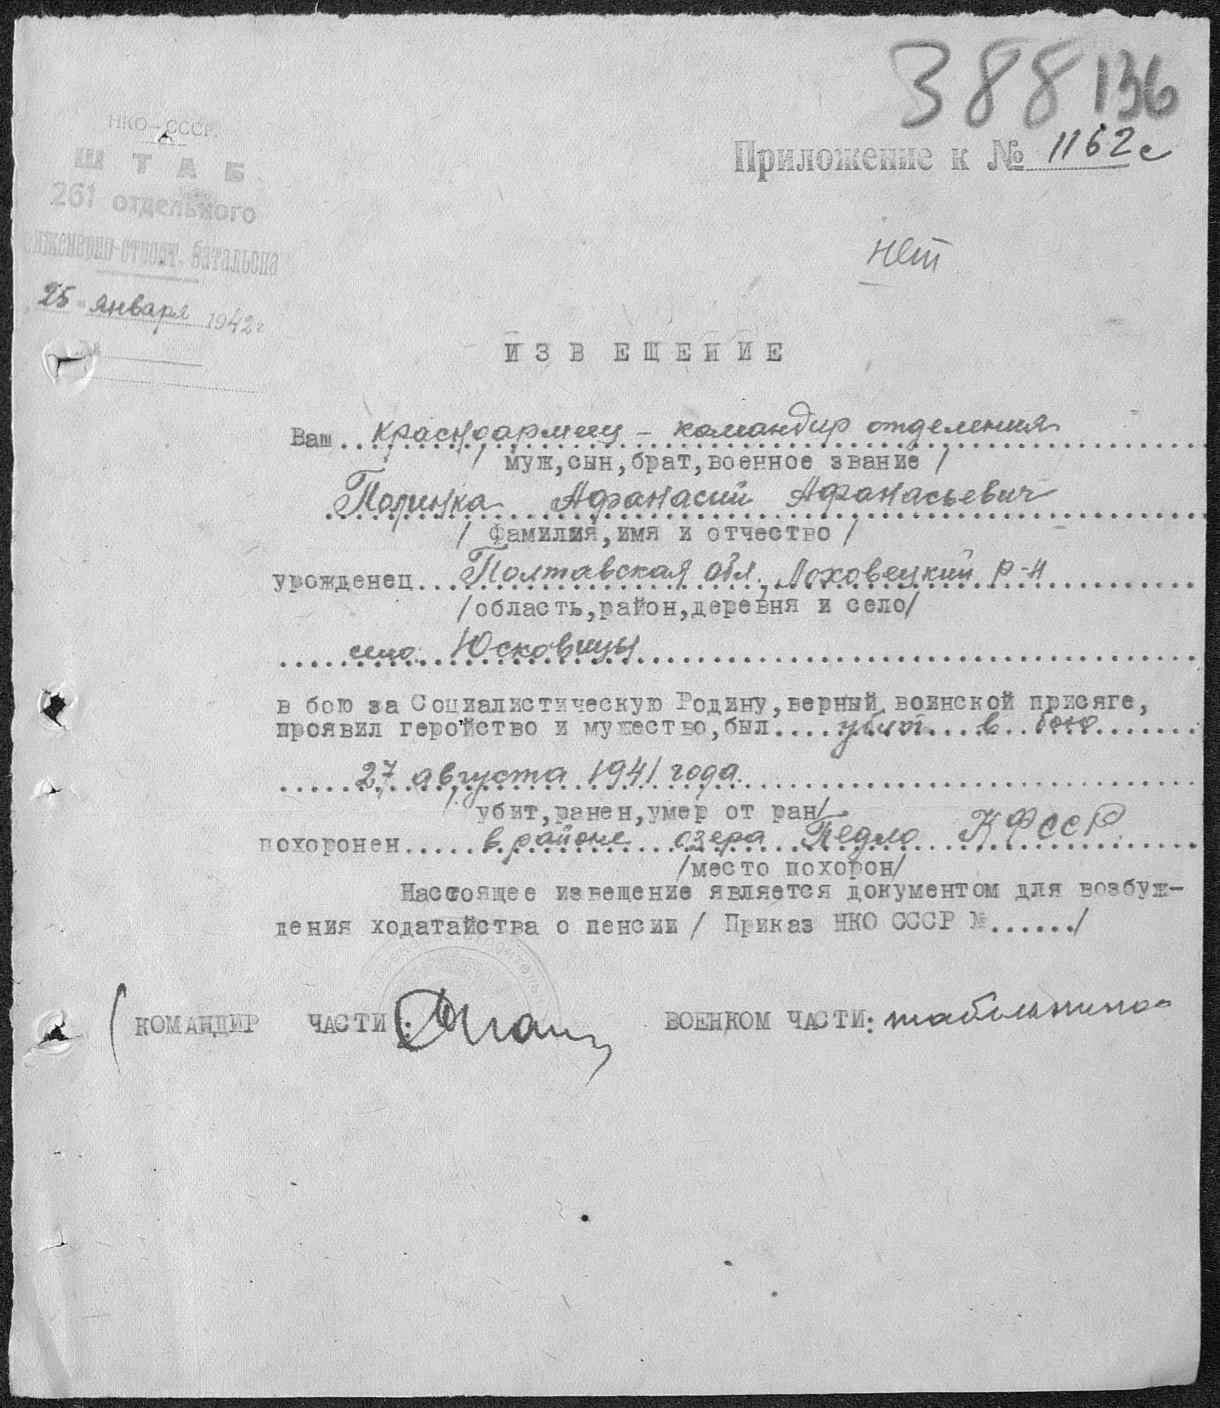 388 136
НКО–СССР.
ШТАБ
261 отдельного
инженерно-строит. батальона
25 января 1942 г
Приложение к № 1162с
нет
ИЗВЕЩЕНИЕ
Ваш.. красноармеец – командир отделения
/ муж,сын,брат,военное звание /
Афанасий Афанасьевич
/ Фамилия,имя и отчество /
урожденец... Полтавская обл., Лоховецкий р-н
/область,район,деревня и село/
село Юсковицы
в бою за Социалистическую Родину,верный воинской присяге,
проявил геройство и мужество,был.... убит в бою
27 августа 1941 года.
/убит,ранен,умер от ран/
похоронен..... в районе озера КФССР
/место похорон/
Настоящее извещение является документом для возбуж-
дения ходатайства о пенсии / Приказ НКО СССР №....../
КОМАНДИР ЧАСТИ:
ВОЕНКОМ ЧАСТИ: